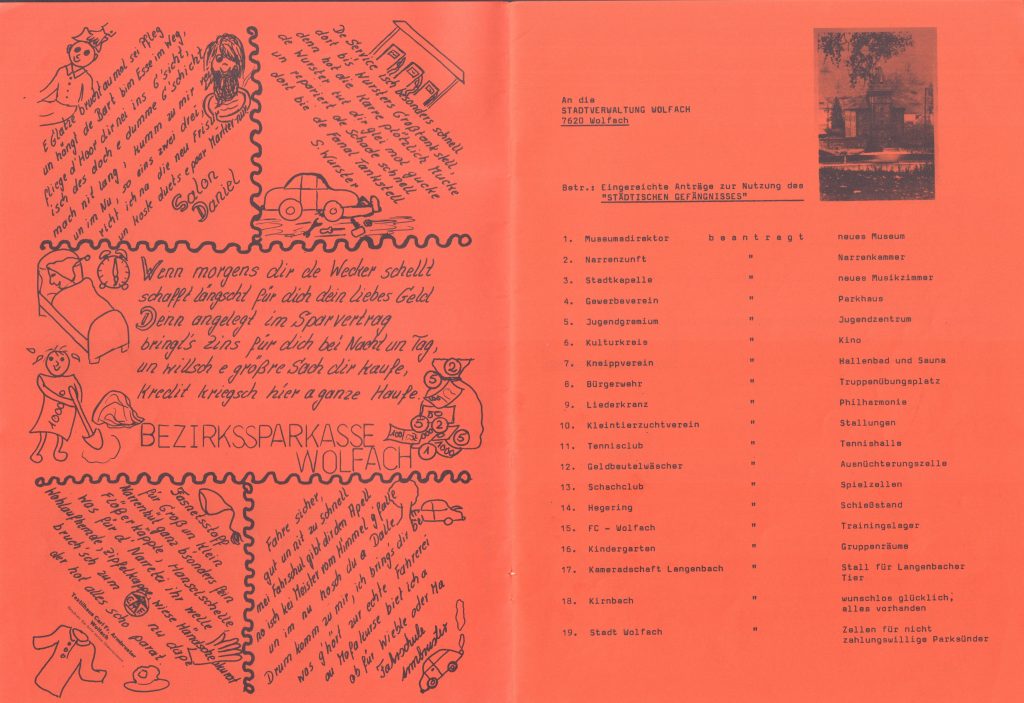 E Glatze brucht au mol sei Pfleg
un hängt de Bart bim Esse im Weg,
fliege d'Hoor dir nei ins G'sicht,
isch des doch e dumme G'schicht
mach nit lang i kumm zu mir
un im Nu, so eins zwei drei
richt ich na die neu Frisur
un koste duets e paar Märker nur
Salon
Daniel
De Service isch bsonders schnell
dort bi Nursters Großtankstell,
denn hot die Karre plötzlich Mucke
de Wurster tut dir glei mol gucke
un repariert de Schade schnell
dort bie de Fanal Tankstell
S. Wurster
Wenn morgens dir de Wecker schellt
schafft längscht für dich dein liebes Geld
Denn angelegt im Sparvertrag
bringt's Zins für dich bei Nacht un Tag,
un willsch e größre Sach dir kaufe,
Kredit kriegsch hier a ganze Haufe.
1000
5 2
100
5 2
5
1 1000
BEZIRKSSPARKASSE
WOLFACH
Fasnetsstoff
für Groß un Klein
Narrenhüt ganz bsonders fein
Flößerkäpple, Hänselschelle
Was für d' Narretei Ihr welle
Wohlaufhemde, Zipfelkappe wise Händsche
bruch'sch zum nu dape
der hot alles scho parat.
Textilhaus Carl Fr. Armbruster
Wolfach
Fahre sicher,
gut un nit zu schnell
mei Fahrschul gibt dir den Apell
no isch kei Meister vom Himmel g'falle
un im nu hosch du a Daile
Drum komm zu mir, ich brings dir bei
was g'hört zur echte Fahrerei
au Mofakurse biet ich a
ob für Wieble oder Ma
Fahrschule
Armbruster
An die
STADTVERWALTUNG WOLFACH
7620 Wolfach
Betr.: Eingereichte Anträge zur Nutzung des
"STÄDTISCHEN GEFÄNGNISSES"
1. Museumsdirektor beantragt neues Museum
2. Narrenzunft " Narrenkammer
3. Stadtkapelle " neues Musikzimmer
4. Gewerbeverein " Parkhaus
5. Jugendgremium " Jugendzentrum
6. Kulturkreis " Kino
7. Kneippverein " Hallenbad und Sauna
8. Bürgerwehr " Truppenübungsplatz
9. Liederkranz " Philharmonie
10. Kleintierzuchtverein " Stallungen
11. Tennisclub " Tennishalle
12. Geldbeutelwäscher " Ausnüchterungszelle
13. Schachclub " Spielzellen
14. Hegering " Schießstand
15. FC - Wolfach " Trainingslager
16. Kindergarten " Gruppenräume
17. Kameradschaft Langenbach " Stall für Langenbacher
Tier
18. Kirnbach " wunschlos glücklich,
alles vorhanden
19. Stadt Wolfach " Zellen für nicht
zahlungswillige Parksünder